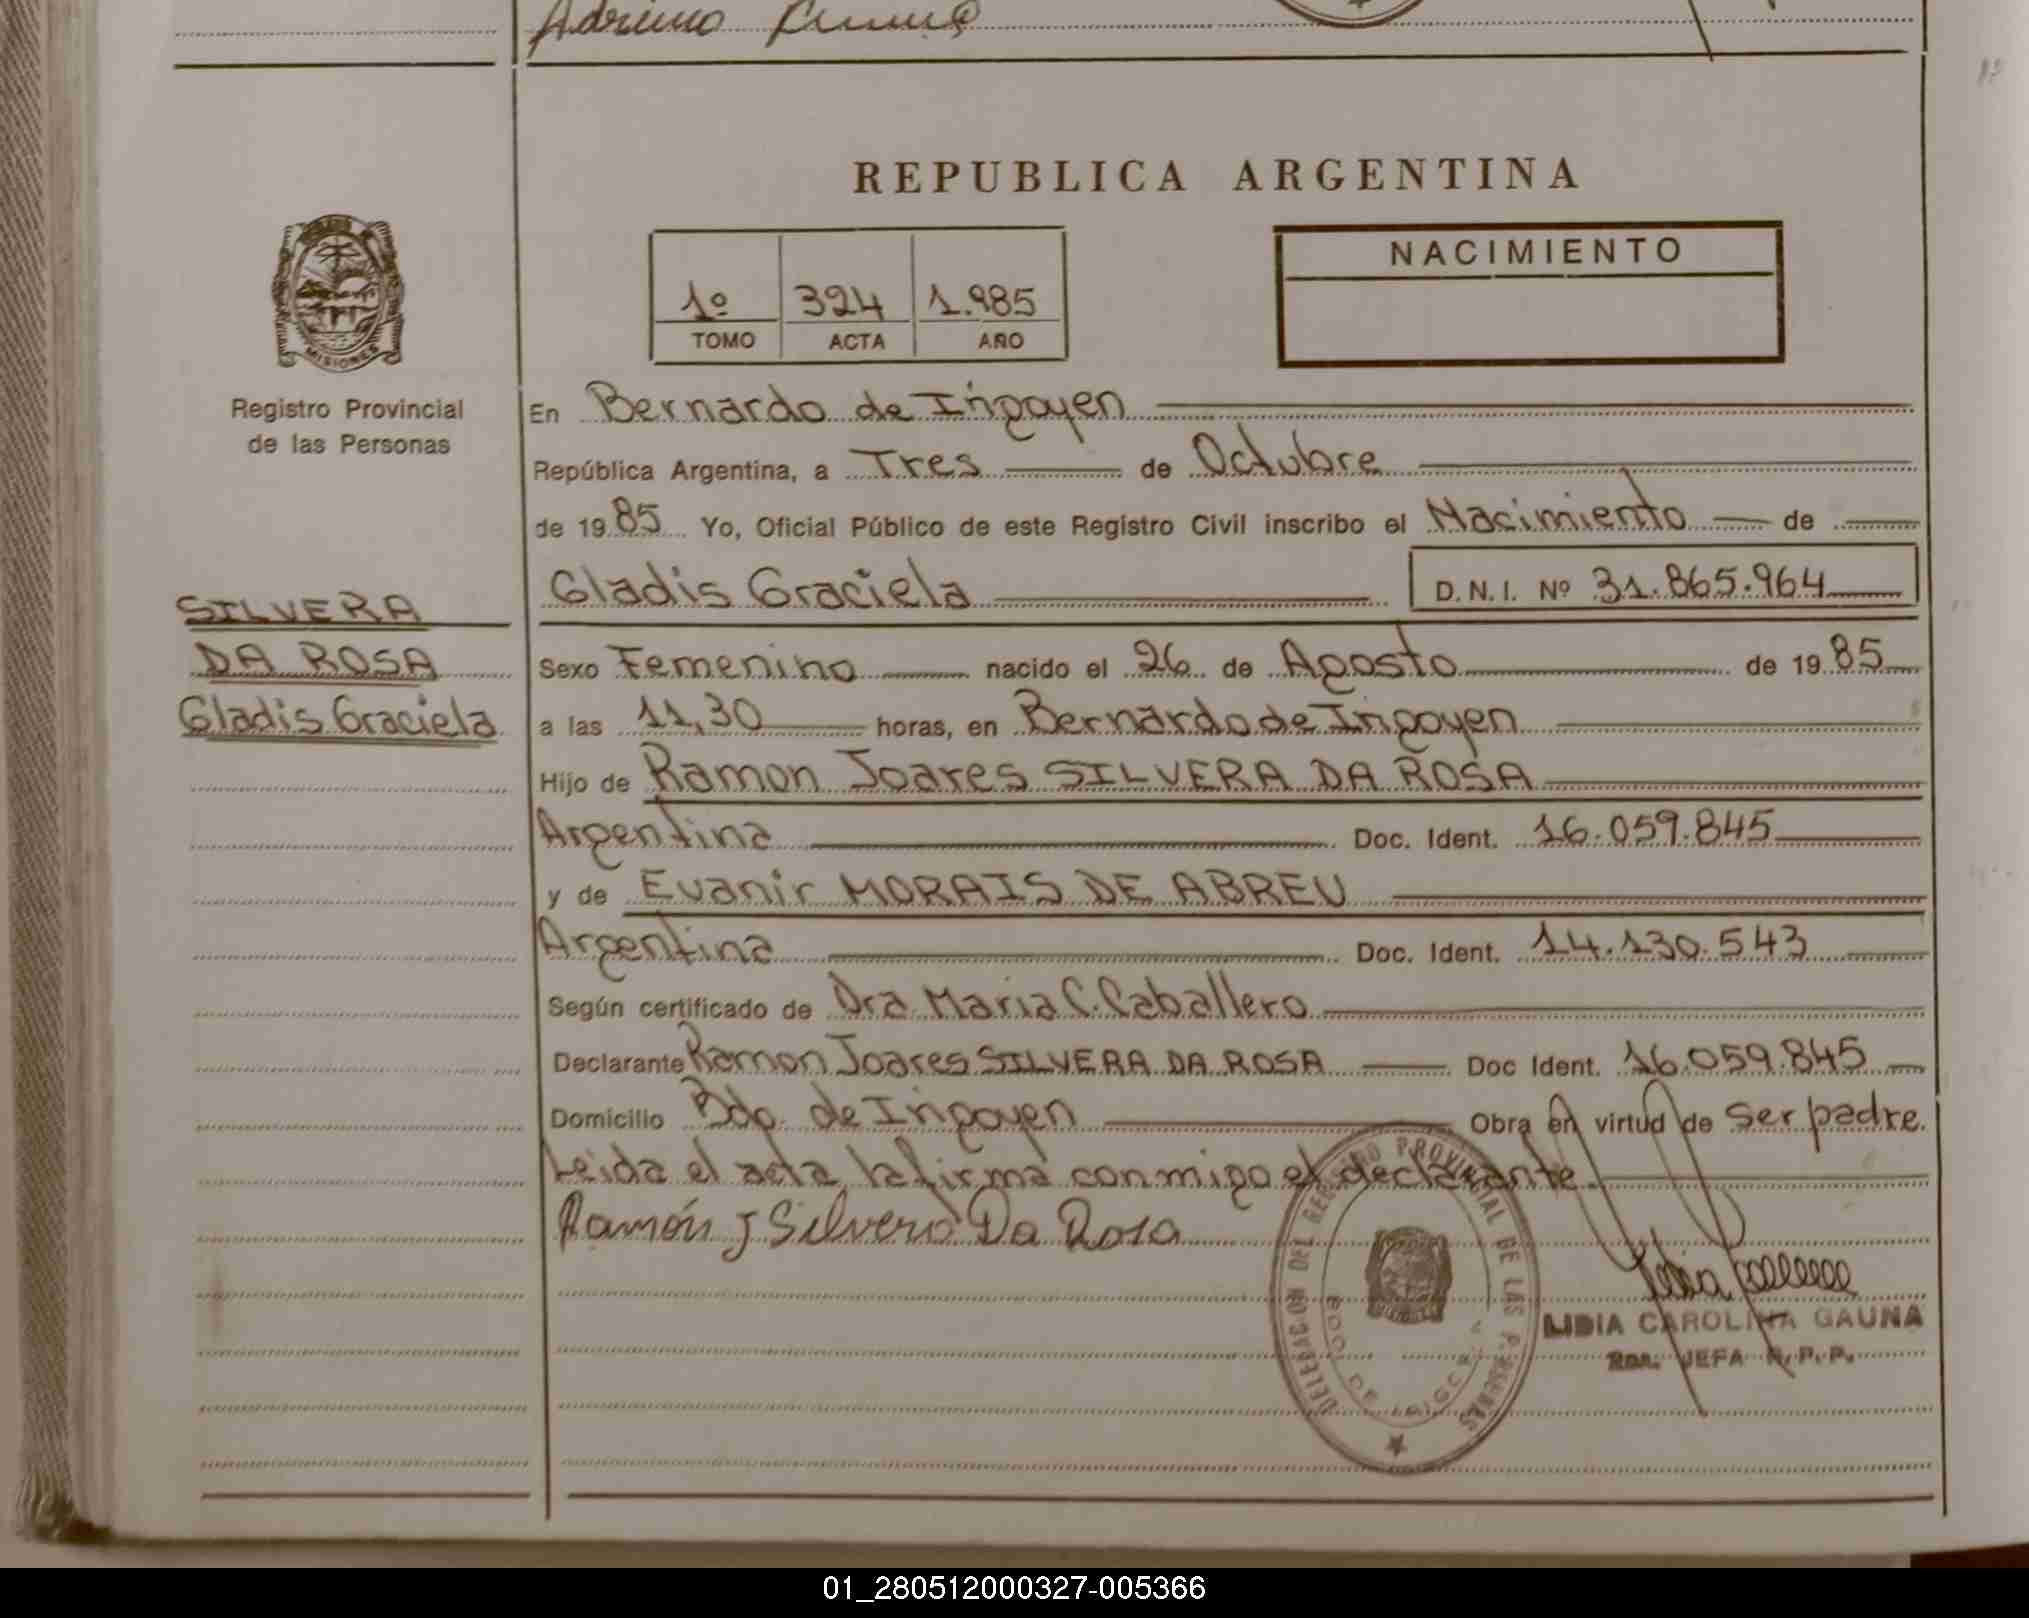 Adriano
REPUBLICA ARGENTINA
MISIONES
1º 324 1.985
TOMO ACTA AÑO
NACIMIENTO
Registro Provincial
de las Personas
En Bernardo de Irigoyen
República Argentina, a Tres de Octubre
de 1985 Yo, Oficial Público de este Registro Civil inscribo el Nacimiento de
Gladis Graciela D.N.I. Nº 31.865.964
SILVERA
DA ROSA
Gladis Graciela
Sexo Femenino nacido el 26 de Agosto de 1985
a las 11,30 horas, en Bernardo de Irigoyen
Hijo de Ramon Joares SILVERA DA ROSA
Argentina Doc. Ident. 16.059.845
y de Evanir MORAIS DE ABREU
Argentina Doc. Ident. 14.130.543
Según certificado de Dra Maria C. Caballero
Declarante Ramon Joares SILVERA DA ROSA Doc Ident. 16.059.845
Domicilio Bdo. de Irigoyen Obra en virtud de ser padre.
Leida el acta, la firma conmigo el declarante.
Ramón J Silvero Da Rosa
DELEGACION DEL REGISTRO PROVINCIAL DE LAS PERSONAS
LIDIA CAROLINA GAUNA
JEFA R.P.P.
01_280512000327-005366